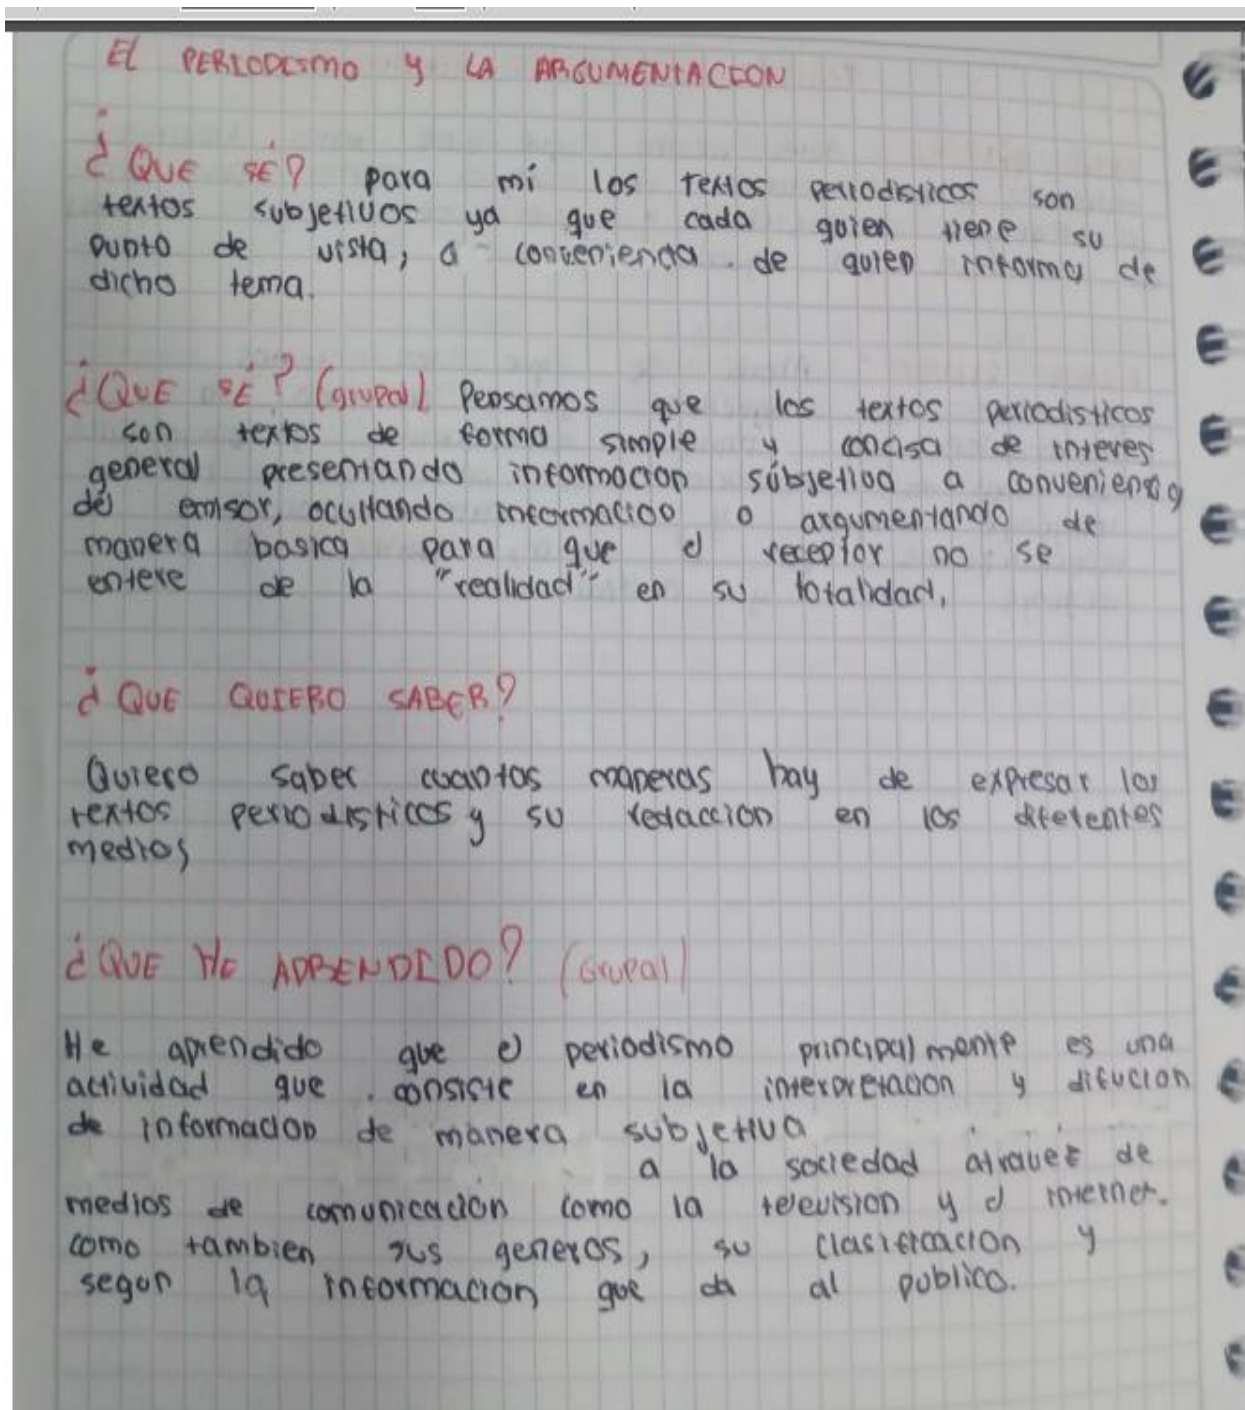 EL PERIODISMO y LA ARGUMENTACION
¿QUE SÉ? para mi los textos periodisticos son
textos subjetivos ya que cada quien tiene su
punto de vista, a conveniencia de quien informa de
dicho tema.
¿QUE SÉ? (grupal) Pensamos que los textos periodisticos
son textos de forma simple y concisa de interes
general presentando informacion subjetiva a conveniencia
del emisor, ocultando informacion o argumentando de
manera basica para que el receptor no se
entere de la "realidad" en su totalidad.
¿QUE QUIERO SABER?
Quiero saber cuantos maneras hay de expresar los
textos periodisticos y su redaccion en los diferentes
medios
¿QUE HE APRENDIDO? (Grupal)
He aprendido que el periodismo principalmente es una
actividad que consiste en la interpretacion y difucion
de informacion de manera subjetiva
a la sociedad atravez de
medios de comunicación como la television y el internet.
como tambien sus generos, su clasificacion y
segun la informacion que da al publico.